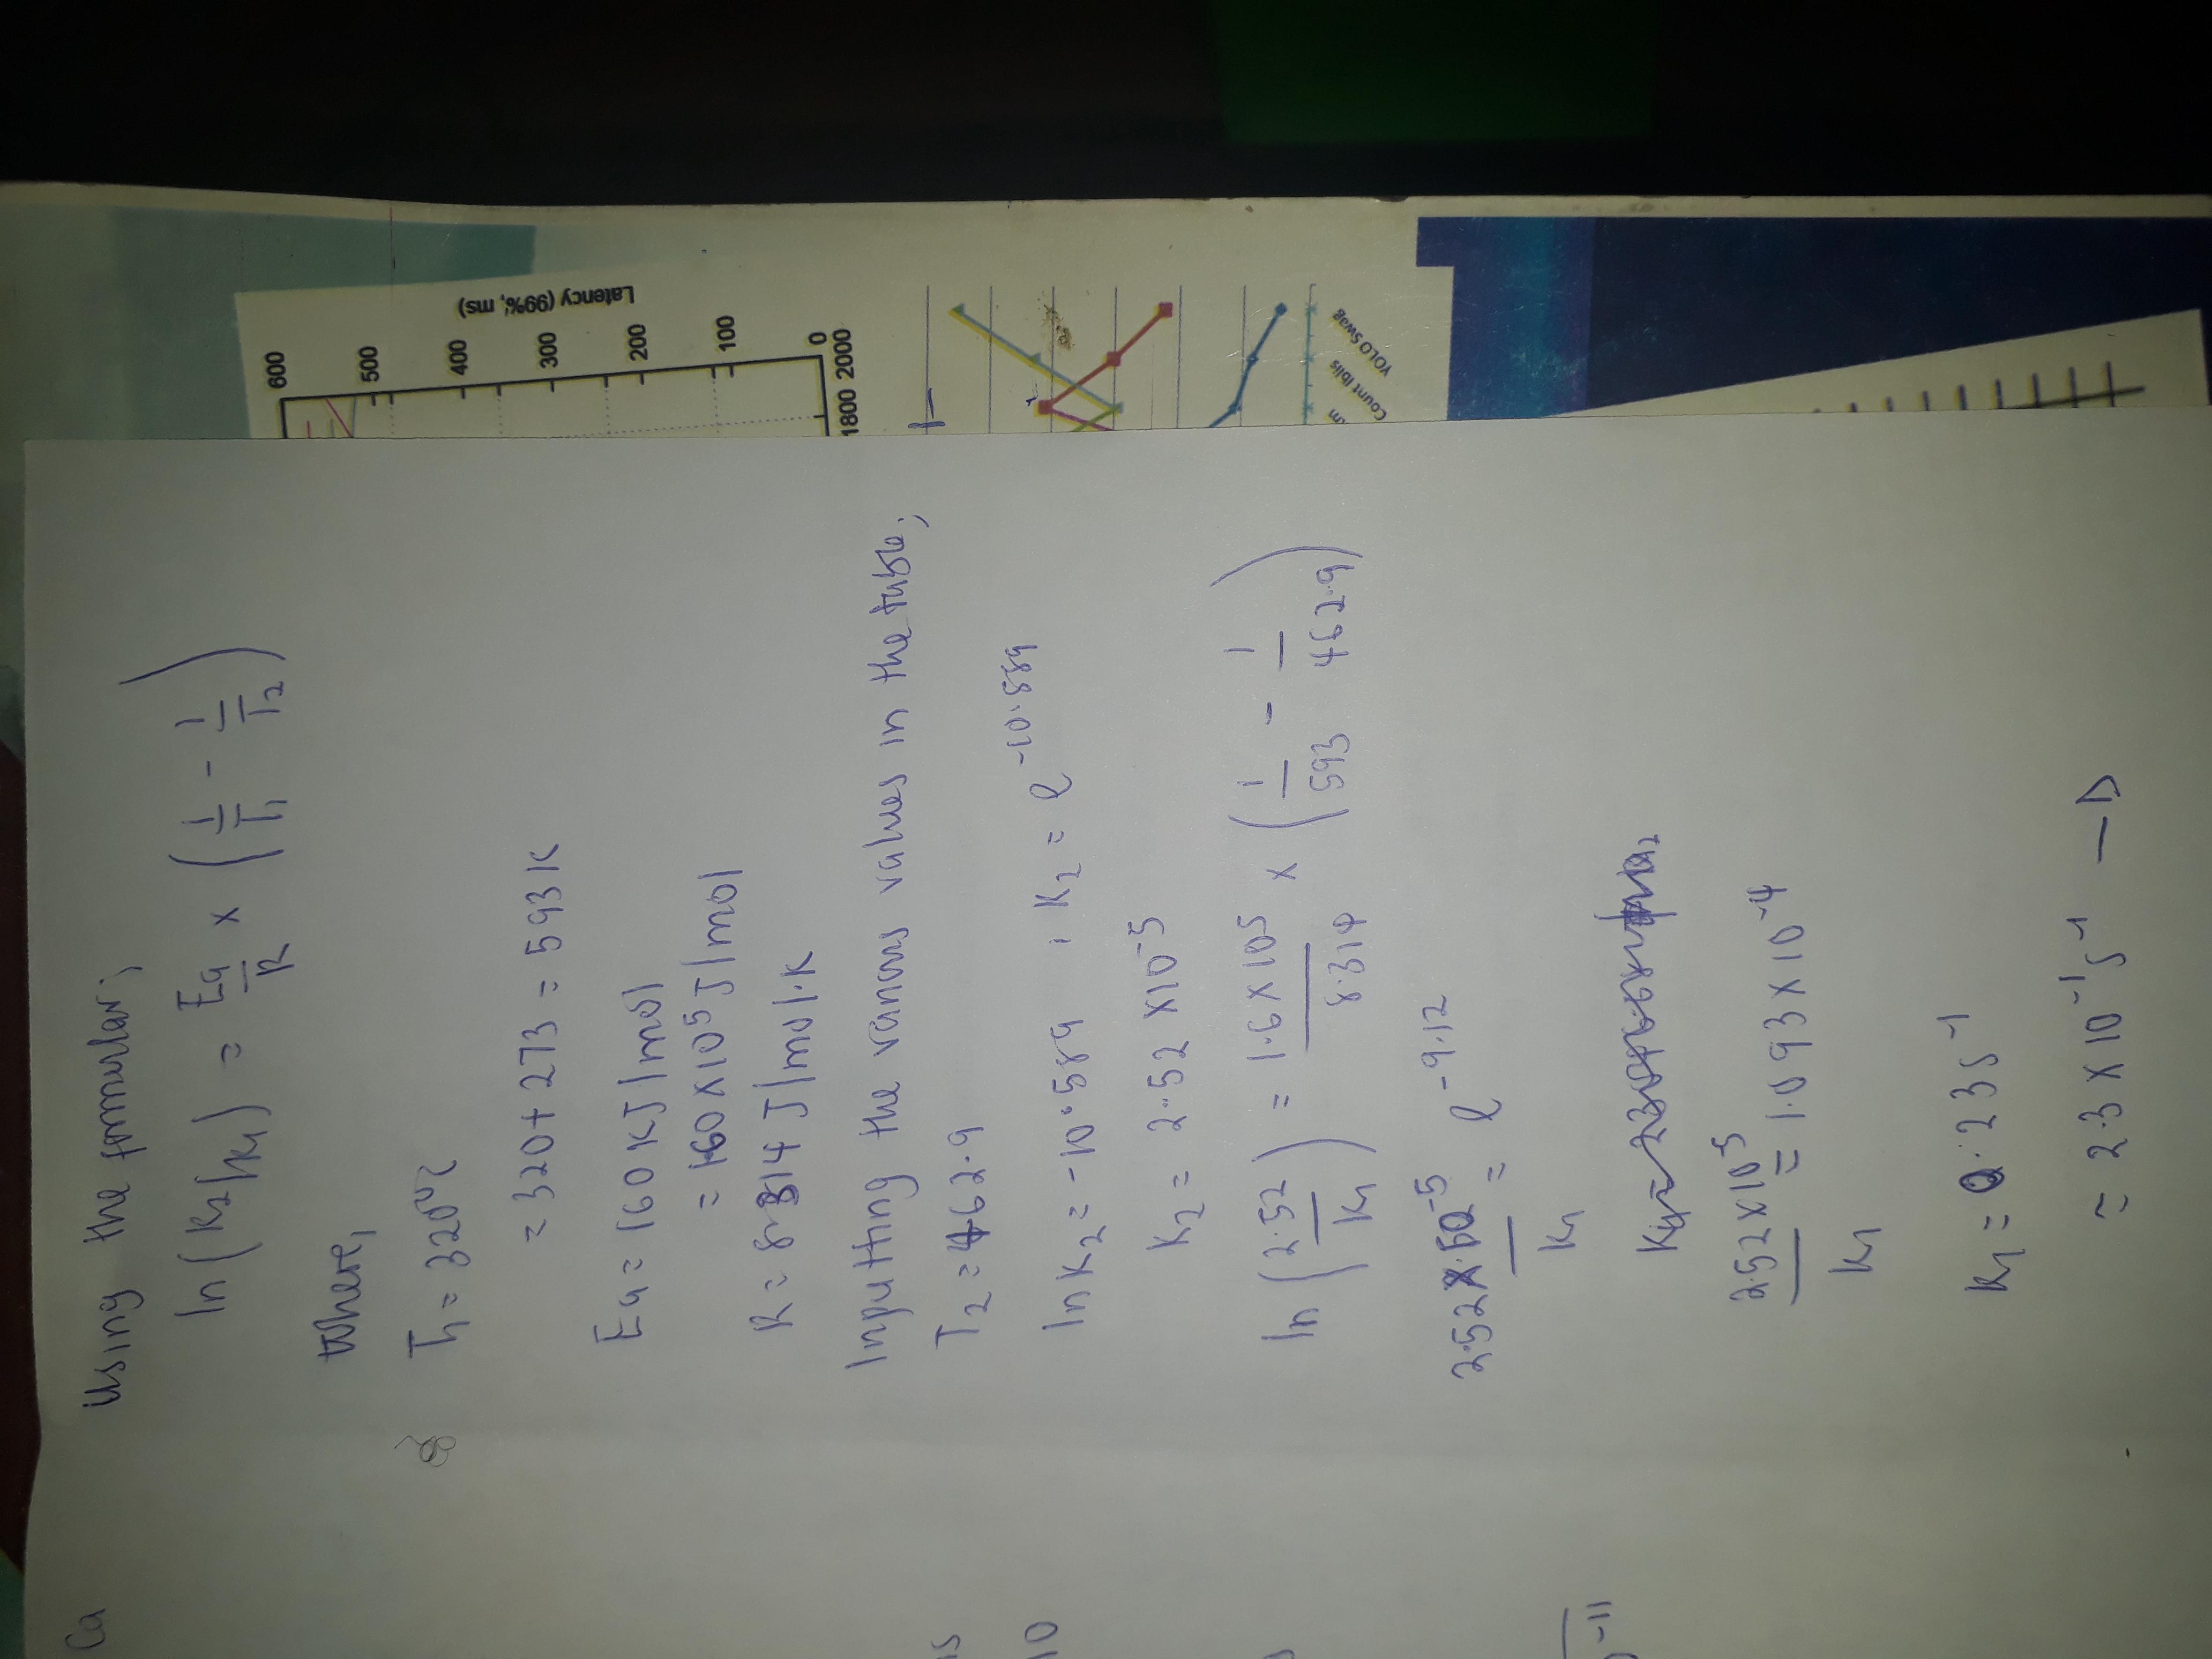 Using the formular;
ln(K₂/K₁) = Ea/R × (1/T₁ - 1/T₂)
Where,
T₁ = 320°C
= 320 + 273 = 593K
Ea = 160 KJ/mol
= 1.60 × 10⁵ J/mol
R = 8.314 J/mol.K
Inputting the various values in the table;
T₂ = 462.9
ln K₂ = -10.589 , K₂ = e^-10.589
K₂ = 2.52 × 10⁻⁵
ln(2.52/K₁) = 1.6 × 10⁵/8.314 × (1/593 - 1/462.9)
2.52 × 10⁻⁵/K₁ = e^-9.12
2.52 × 10⁵/K₁ = 1.093 × 10⁻⁴
K₁ = 0.23 s⁻¹
= 2.3 × 10⁻¹ s⁻¹ — D
Ca
10
-11
Latency (99%, ms)
600
500
400
300
200
100
0
1800 2000
Count Iblis
YOLO Swag